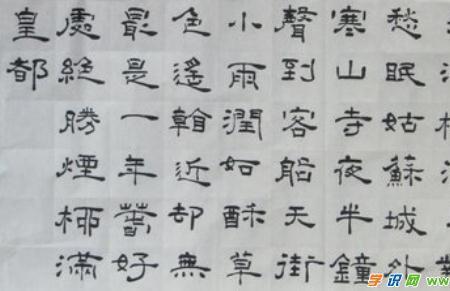 愁眠姑蘇城外
寒山寺夜半鐘
聲到客船天街
小雨潤如酥草
色遙看近却無
最是一年萅好
處絕勝煙柳滿
皇都
学识网